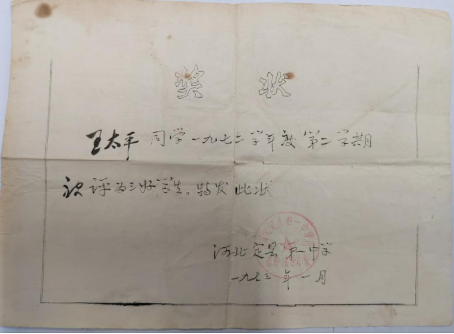 奖状
王太平同学一九七二学年度第二学期
被评为三好学生。特发此状
河北定县第一中学
一九七三年一月